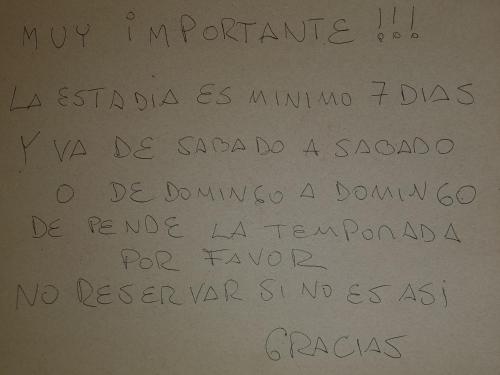 MUY iMPORTANTE !!!
LA ESTADIA ES MINIMO 7 DIAS
Y VA DE SABADO A SABADO
O DE DOMINGO A DOMINGO
DE PENDE LA TEMPORADA
POR FAVOR
NO RESERVAR SI NO ES ASi
GRACIAS